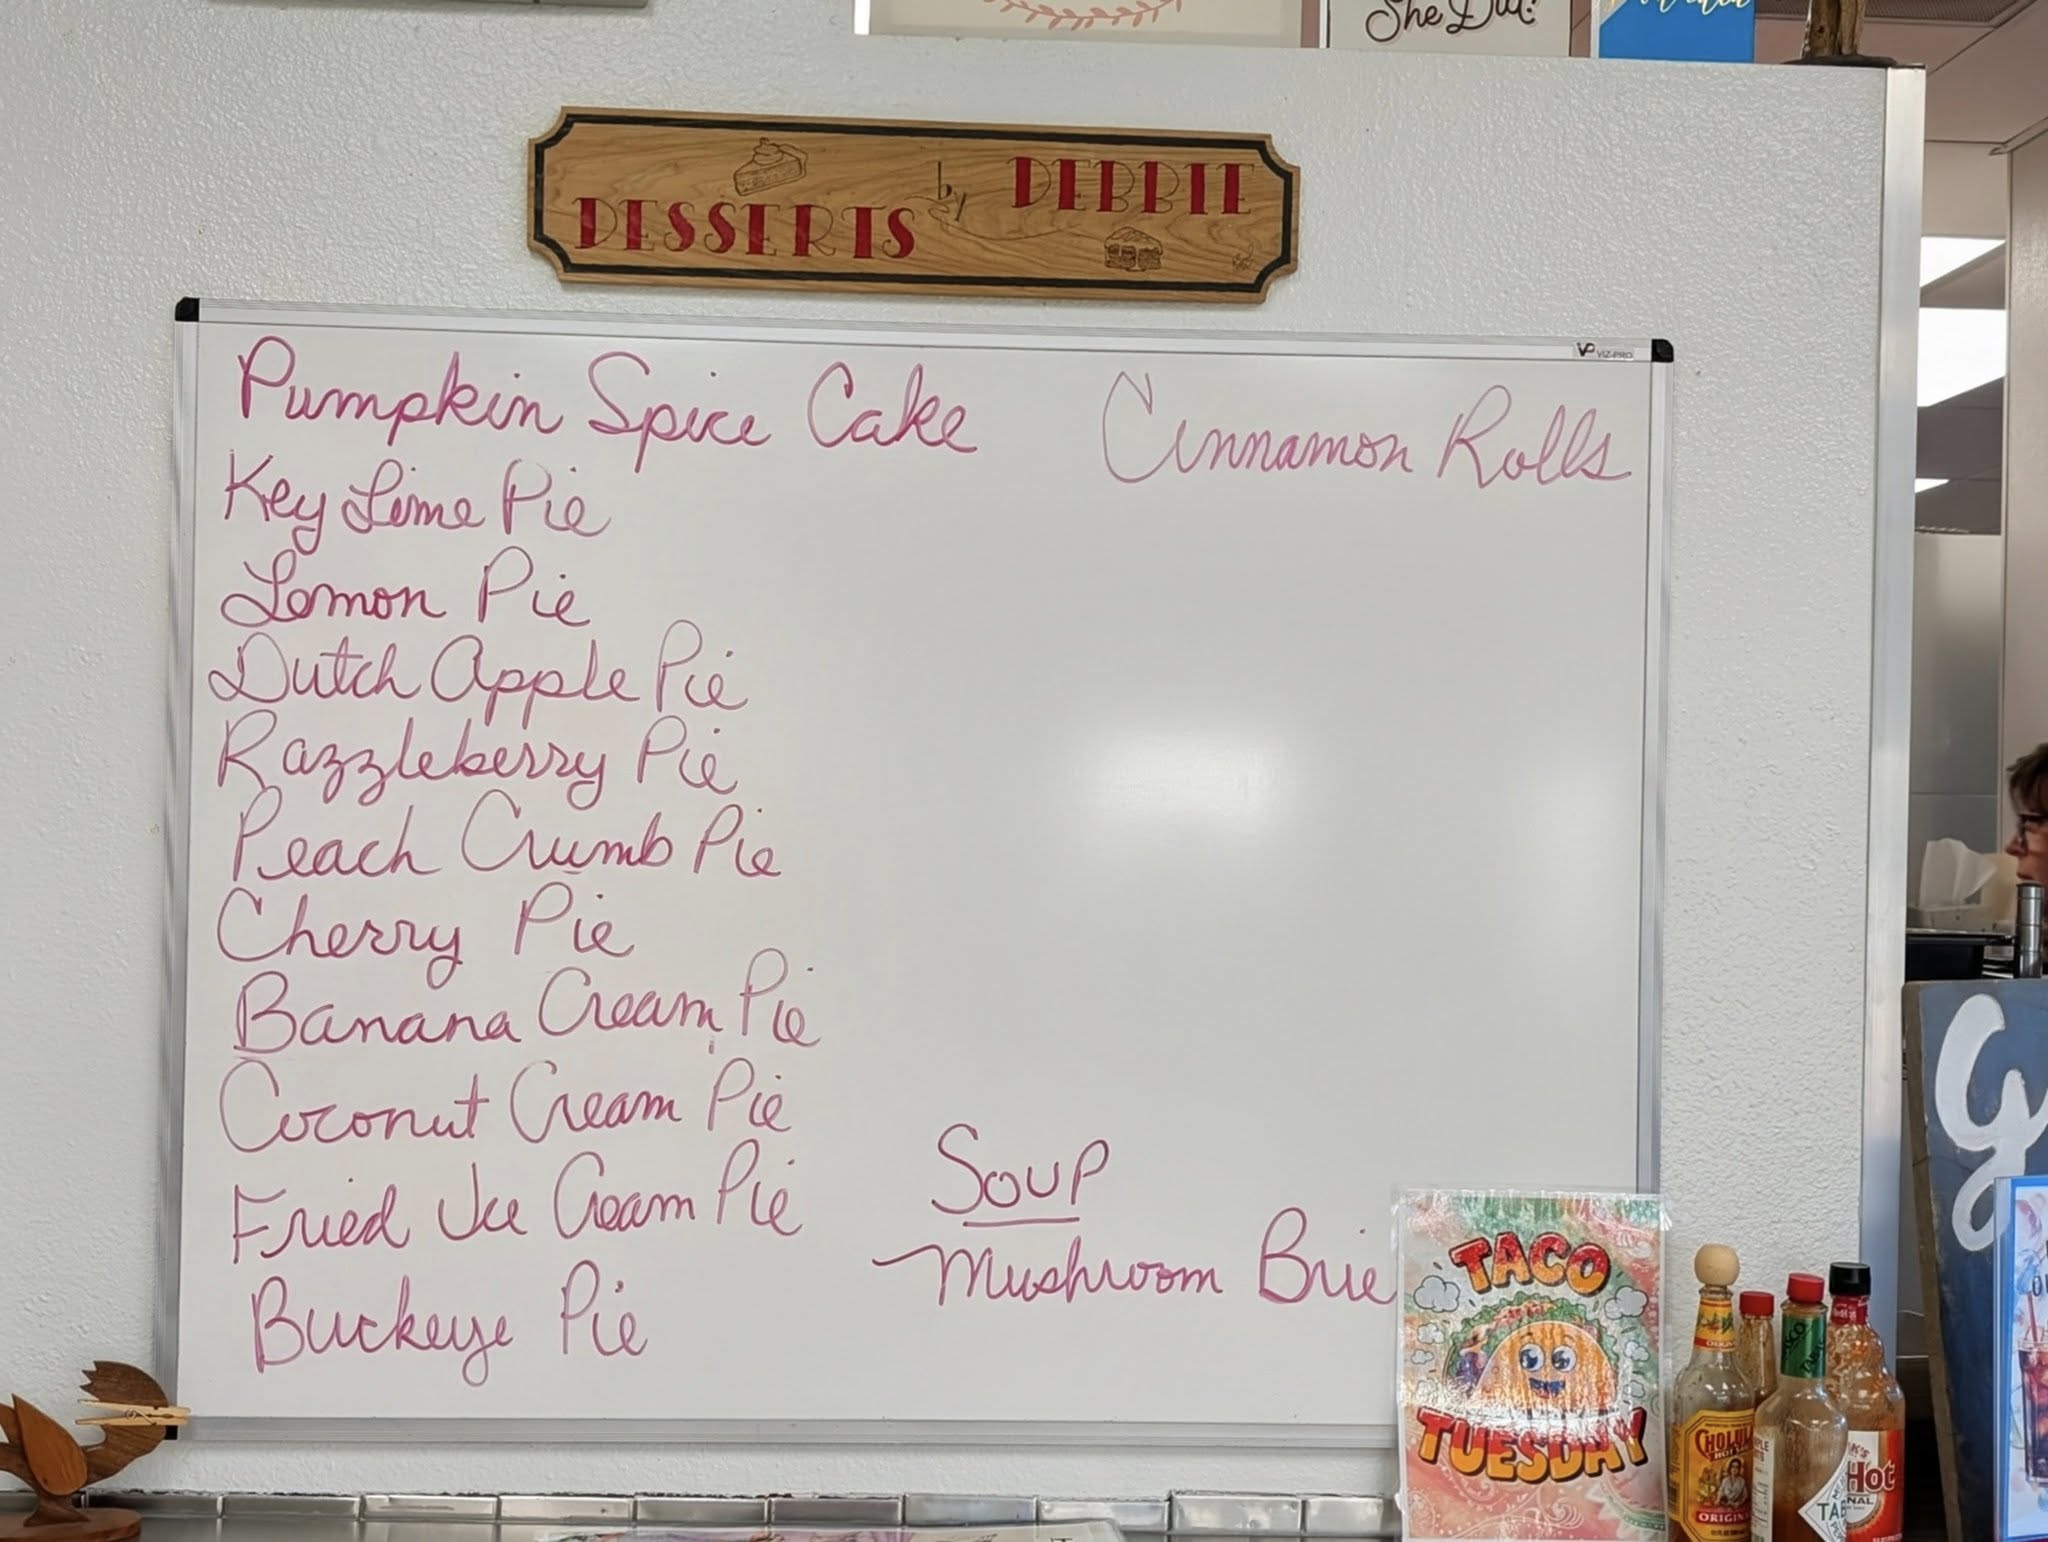 She Did!
DESSERTS by DEBBIE
VP VIZ-PRO
Pumpkin Spice Cake
Cinnamon Rolls
Key Lime Pie
Lemon Pie
Dutch Apple Pie
Razzleberry Pie
Peach Crumb Pie
Cherry Pie
Banana Cream Pie
Coconut Cream Pie
Fried Ice Cream Pie
Buckeye Pie
SOUP
Mushroom Brie
TACO
TUESDAY
CHOLULA
HOT SAUCE
ORIGINAL
TABASCO
Hot